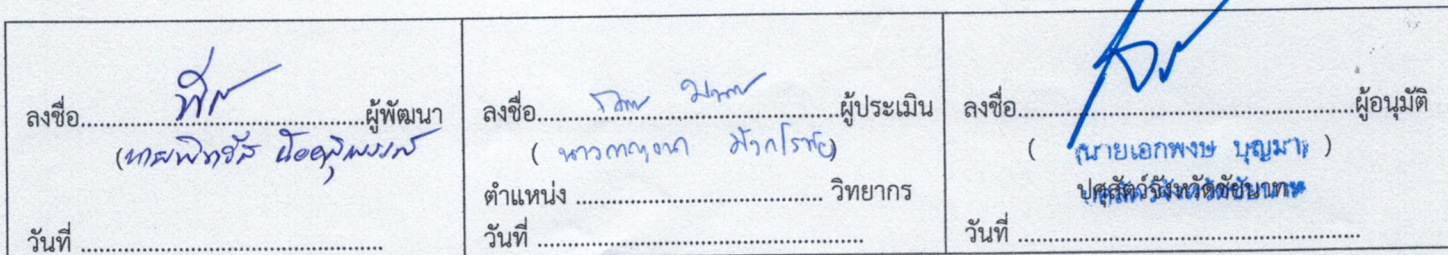 ลงชื่อ................................ผู้พัฒนา
(นาย
วันที่ ................................
ลงชื่อ................................ผู้ประเมิน
( นางกาญจนา มังกโรทัย)
ตำแหน่ง ................................ วิทยากร
วันที่ ................................
ลงชื่อ................................ผู้อนุมัติ
( (นายเอกพงษ บุญมา) )
ปศุสัตว์จังหวัดชัยนาท
วันที่ ................................